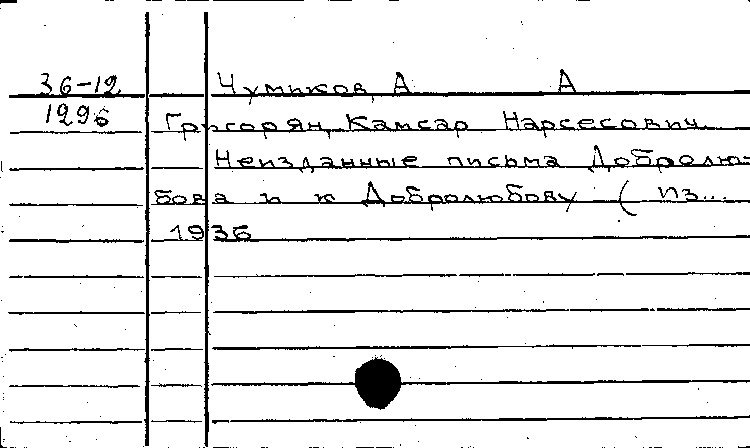 36-12 Чумиков, А А
1296 Григорян, Камсар Нарсесович.
Неизданные письма Добролю-
бова и к Добролюбову (Из...
1936